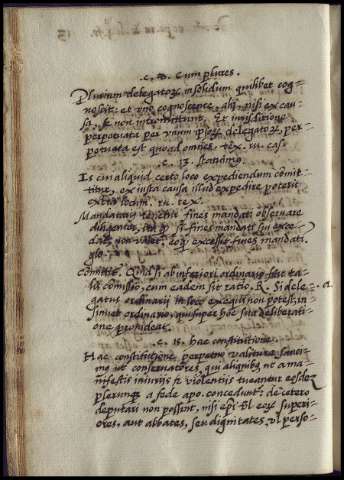 c. 8. Cum plures.
Plurium delegatoꝝ insolidum quilibet cog-
noscit: et uno cognoscente, alij, nisi ex cau-
sa, se non intromittunt. Et iurisditione
perpetuata per unum ipsoꝝ delegatoꝝ, per-
petuata est quoad omnes. tex. in. cas.
c. 13. Statuimꝰ.
Is cui aliquid certo loco expediendum comit-
titur, ex iusta causa illud expedire poterit
extra locum. in tex.
Mandatariꝰ tenetur fines mandati obseruare
diligenter, ita ꝙ si fines mandati sui exce-
dat, non valet, eoꝙ excessit fines mandati.
glo.
Comittit. Quid si ab inferiori ordinario fiat ta-
lis comissio, cum eadem sit ratio, R. si dele-
gatus ordinarij in loco exequi non potest, in-
sinuet ordinario, qui super hoc sua deliberati-
one prouideat.
c. 15. hac constitutione.
Hac constitutione, perpetuo valitura sanci-
mꝰ ut conseruatores, qui aliquos ut a ma-
nifestis iniurijs et violentijs tueantur eosdē
plerunqꝫ a sede apo. concedunt: de cetero
deputari non possint, nisi epi vl eoꝝ superi-
ores, aut abbates, seu dignitates, vl perso-